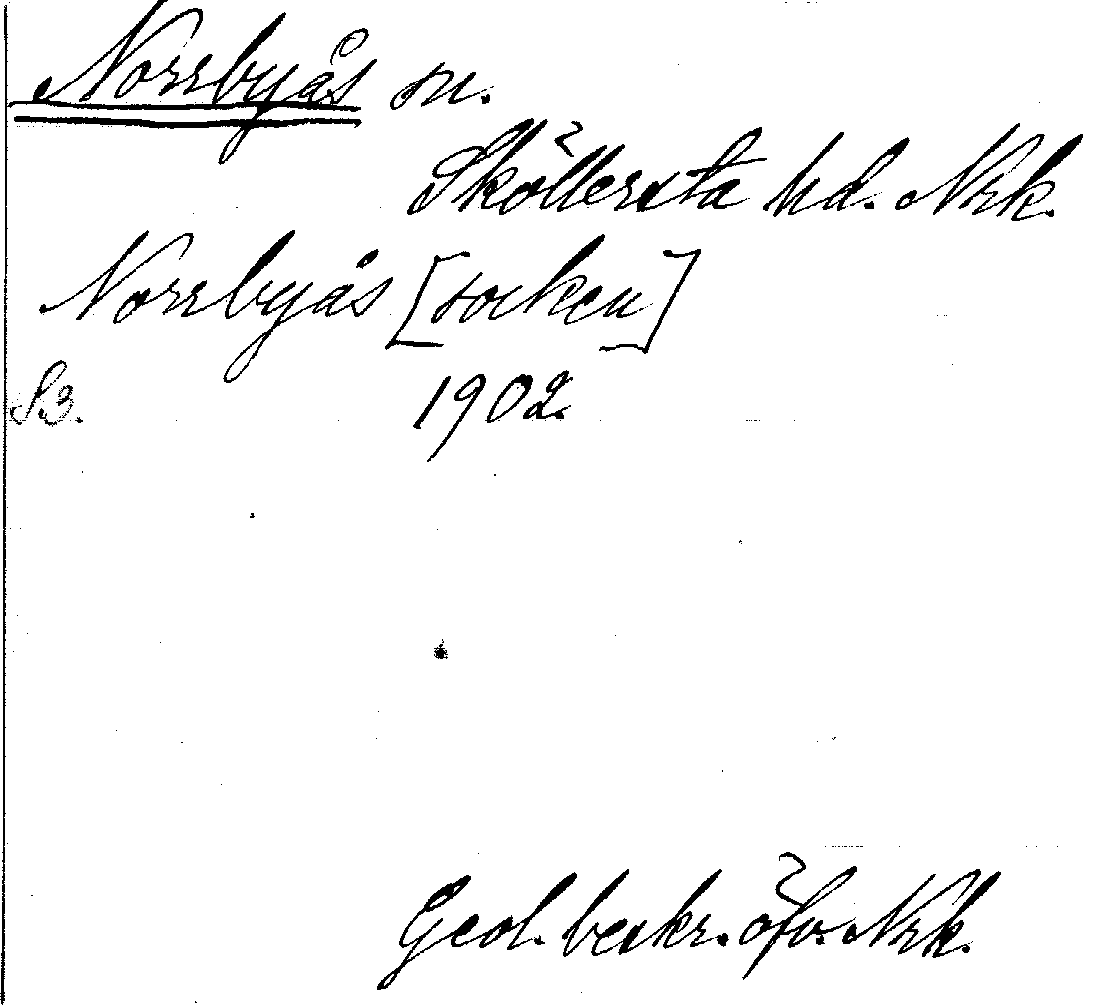 Norrbyås sn.
Sköllersta hd. Nrk.
Norrbyås [socken]
S3. 1902.
Geol. beskr. öfv. Nrk.